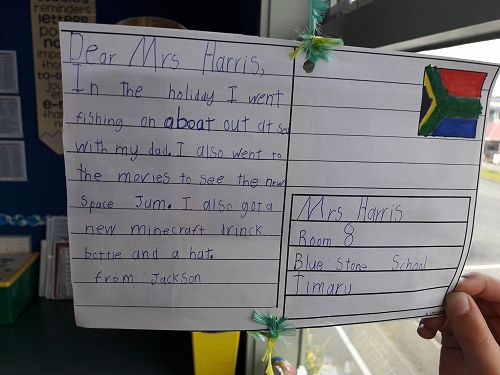 Dear Mrs Harris,
In the holiday I went
fishing on aboat out at sea
with my dad. I also went to
the movies to see the new
space Jam. I also got a
new minecraft drinck
bottle and a hat.
from Jackson
Mrs Harris
Room 8
Blue Stone School
Timaru
reminders
letters